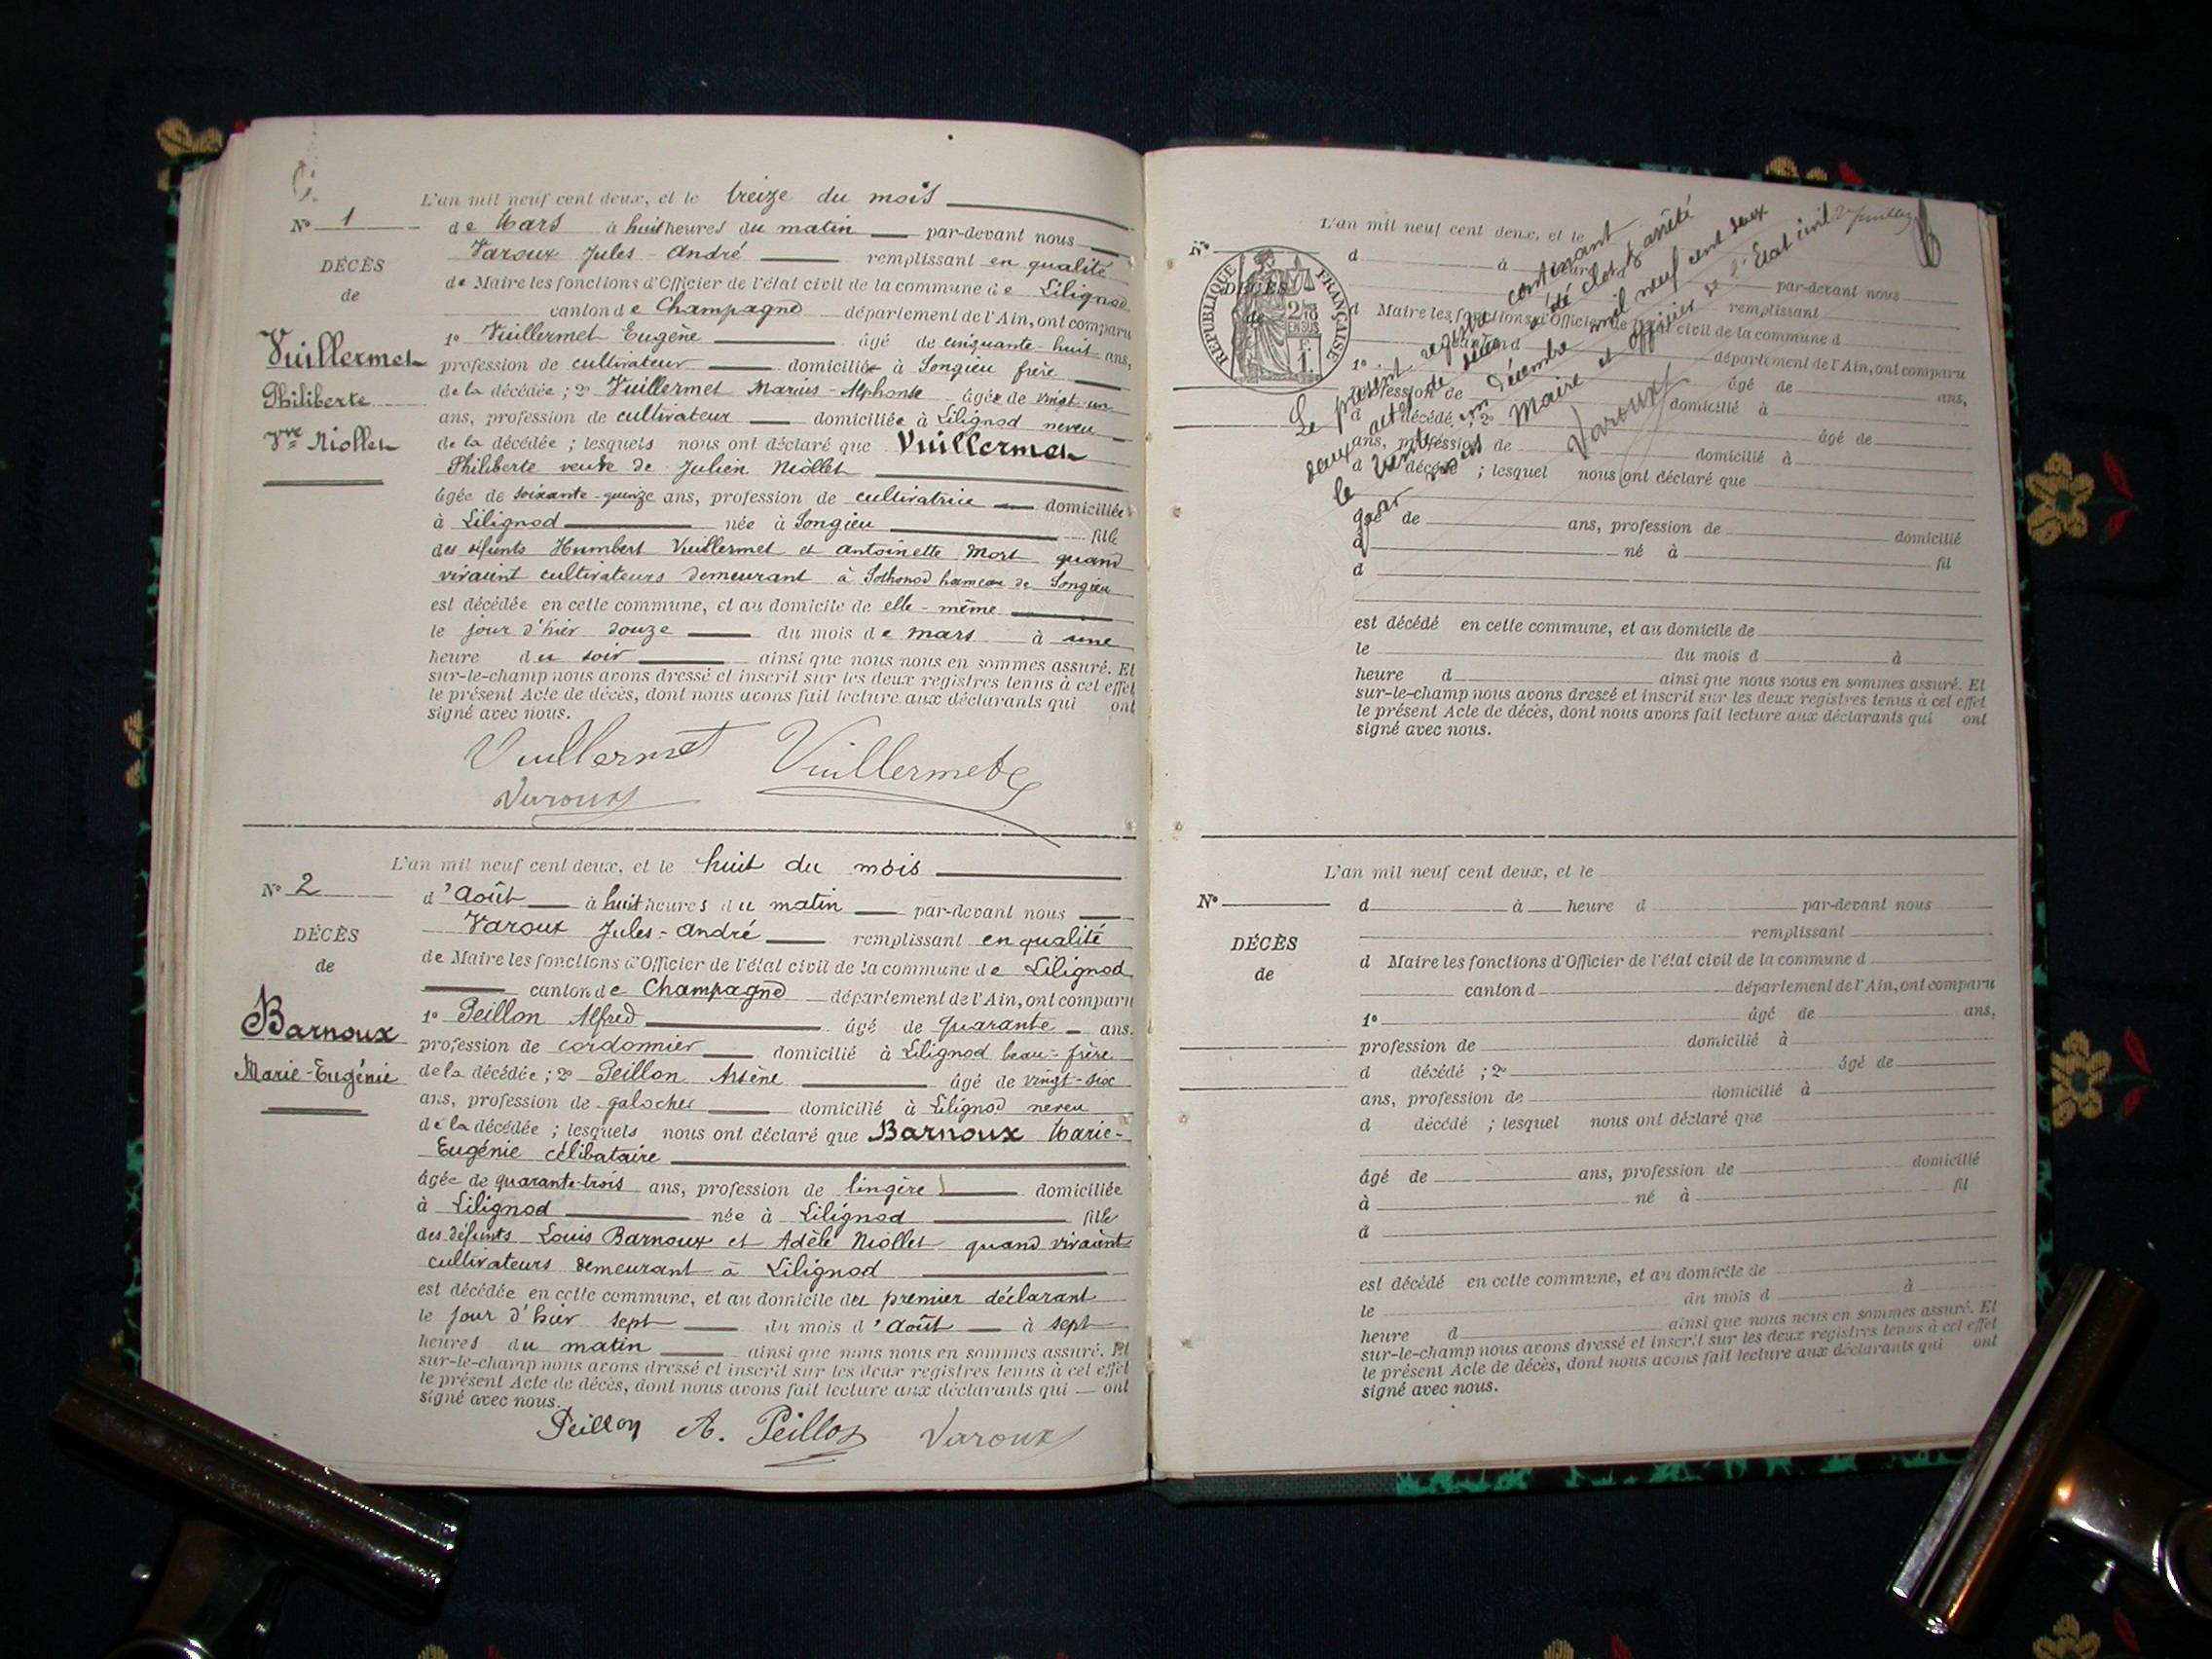 L'an mil neuf cent deux, et le treize du mois
N° 1
de Mars à huit heures du matin par-devant nous
Varoux Jules-André remplissant en qualité
DÉCÈS
de Maire les fonctions d'Officier de l'état civil de la commune de Lilignod
de
canton de Champagne département de l'Ain, ont comparu
1° Vuillermet Eugène âgé de cinquante-huit ans,
Vuillermet
profession de cultivateur domicilié à Songieu frère
Philiberte
de la décédée ; 2° Vuillermet Marius-Alphonse âgé de vingt-un
ans, profession de cultivateur domicilié à Lilignod neveu
Vve Niollet
de la décédée ; lesquels nous ont déclaré que Vuillermet
Philiberte veuve de Julien Niollet
âgée de soixante-quinze ans, profession de cultivatrice domiciliée
à Lilignod née à Songieu fille
des défunts Humbert Vuillermet et Antoinette Mort quand
vivaient cultivateurs demeurant à Sothonod hameau de Songieu
est décédée en cette commune, et au domicile de elle-même
le jour d'hier douze du mois de mars à une
heure du soir ainsi que nous nous en sommes assuré. Et
sur-le-champ nous avons dressé et inscrit sur les deux registres tenus à cet effet
le présent Acte de décès, dont nous avons fait lecture aux déclarants qui ont
signé avec nous.
Vuillermet Vuillermet
Varoux
L'an mil neuf cent deux, et le huit du mois
N° 2
d'Août à huit heures du matin par-devant nous
Varoux Jules-André remplissant en qualité
DÉCÈS
de Maire les fonctions d'Officier de l'état civil de la commune de Lilignod
de
canton de Champagne département de l'Ain, ont comparu
1° Peillon Alfred âgé de quarante ans.
Barnoux
profession de cordonnier domicilié à Lilignod beau-frère
Marie-Eugénie
de la décédée ; 2° Peillon Arsène âgé de vingt-six
ans, profession de galocher domicilié à Lilignod neveu
de la décédée ; lesquels nous ont déclaré que Barnoux Marie-
Eugénie célibataire
âgée de quarante-trois ans, profession de lingère domiciliée
à Lilignod née à Lilignod fille
des défunts Louis Barnoux et Adèle Niollet quand vivaient
cultivateurs demeurant à Lilignod
est décédée en cette commune, et au domicile du premier déclarant
le jour d'hier sept du mois d'Août à sept
heures du matin ainsi que nous nous en sommes assuré. Et
sur-le-champ nous avons dressé et inscrit sur les deux registres tenus à cet effet
le présent Acte de décès, dont nous avons fait lecture aux déclarants qui ont
signé avec nous.
Peillon A. Peillon Varoux
L'an mil neuf cent deux, et le
N°
d à heure par-devant nous
remplissant
DÉCÈS
de
RÉPUBLIQUE FRANÇAISE
d Maire les fonctions d'Officier de l'état civil de la commune d
canton d département de l'Ain, ont comparu
1° âgé de ans,
profession de domicilié à
d décédé ; 2° âgé de
ans, profession de domicilié à
d décédé ; lesquel nous ont déclaré que
âgé de ans, profession de domicilié
à né à fil
d
est décédé en cette commune, et au domicile de
le du mois d à
heure d ainsi que nous nous en sommes assuré. Et
sur-le-champ nous avons dressé et inscrit sur les deux registres tenus à cet effet
le présent Acte de décès, dont nous avons fait lecture aux déclarants qui ont
signé avec nous.
Le présent registre contenant
deux actes de décès a été clos et arrêté
le trente un décembre mil neuf cent deux
par nous Maire et officier de l'État civil
Varoux
L'an mil neuf cent deux, et le
N°
d à heure d par-devant nous
remplissant
DÉCÈS
d Maire les fonctions d'Officier de l'état civil de la commune d
de
canton d département de l'Ain, ont comparu
1° âgé de ans,
profession de domicilié à
d décédé ; 2° âgé de
ans, profession de domicilié à
d décédé ; lesquel nous ont déclaré que
âgé de ans, profession de domicilié
à né à fil
d
est décédé en cette commune, et au domicile de
le du mois d à
heure d ainsi que nous nous en sommes assuré. Et
sur-le-champ nous avons dressé et inscrit sur les deux registres tenus à cet effet
le présent Acte de décès, dont nous avons fait lecture aux déclarants qui ont
signé avec nous.